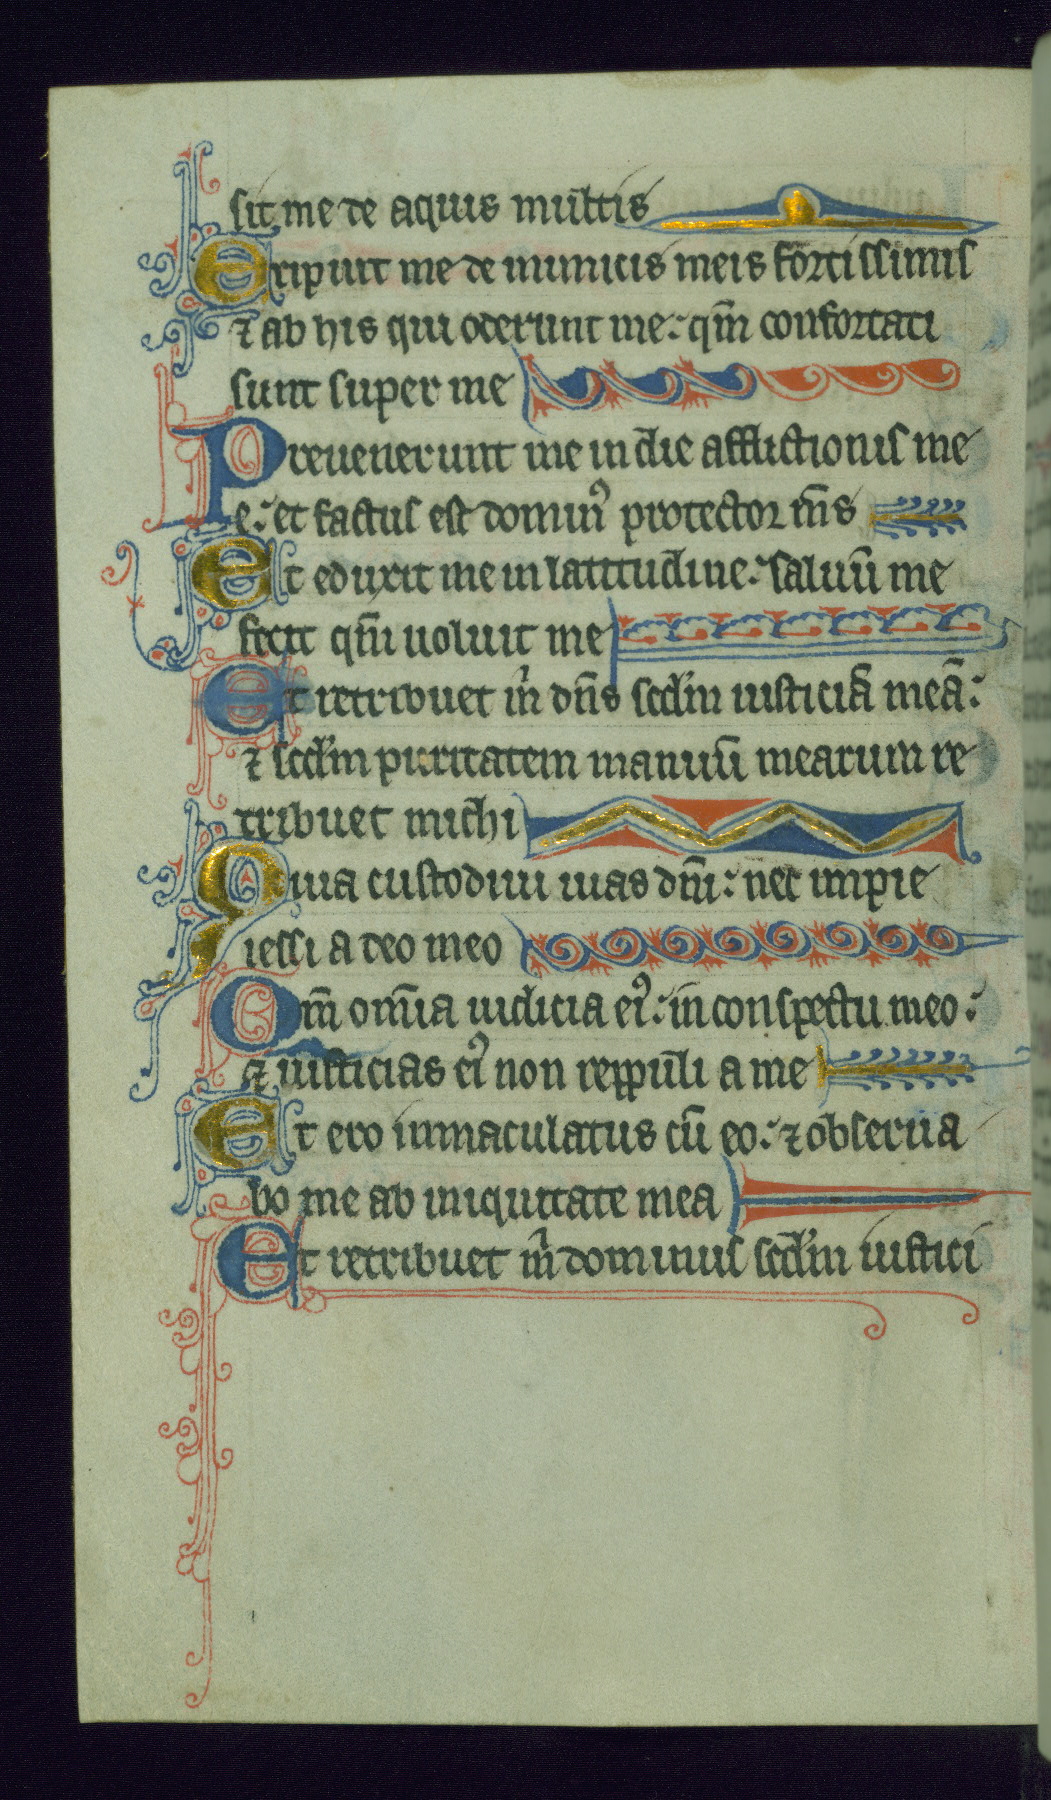 sit me de aquis multis
Eripuit me de inimicis meis fortissimis
⁊ ab his qui oderunt me: qm̄ confortati
sunt super me
Preuenerunt me in die afflictionis me
e: et factus est dominꝰ protector m̄s
Et eduxit me in latitudine: saluū me
fecit qm̄ uoluit me
Et retribuet m̄ dn̄s scdm̄ iusticiā meā:
⁊ scdm̄ puritatem manuū mearum re
tribuet michi
Quia custodiui uias dn̄i: nec impie
gessi a deo meo
Qm̄ om̄ia iudicia eiꝰ: in conspectu meo:
⁊ iusticias eiꝰ non reppuli a me
Et ero inmaculatus cū eo: ⁊ obserua
bo me ab iniquitate mea
Et retribuet m̄ dominus scdm̄ iustici